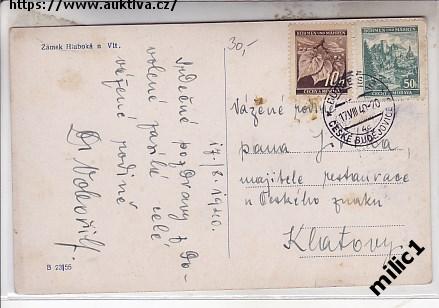 https://www.auktiva.cz/
Zámek Hluboká n Vlt.
30,-
BÖHMEN UND MÄHREN
10 h
ČECHY A MORAVA
BÖHMEN UND MÄHREN
50 h
ČECHY A MORAVA
17.VIII 40-20
ČESKÉ BUDĚJOVICE
17./8. 1940.
Srdečné pozdravy z do-
volené zasílá celé
vážené rodině
Dr
Vážené rodině
pana
majitele restaurace
u Českého znaku
Klatovy
B 23155
milic1